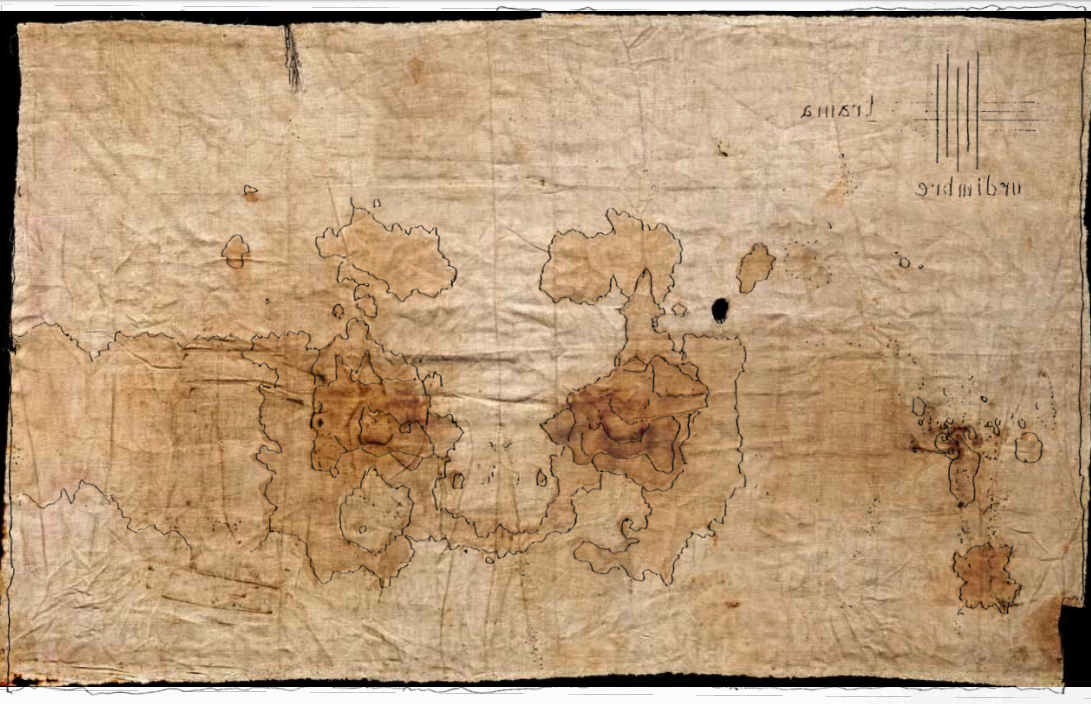 trama
urdimbre